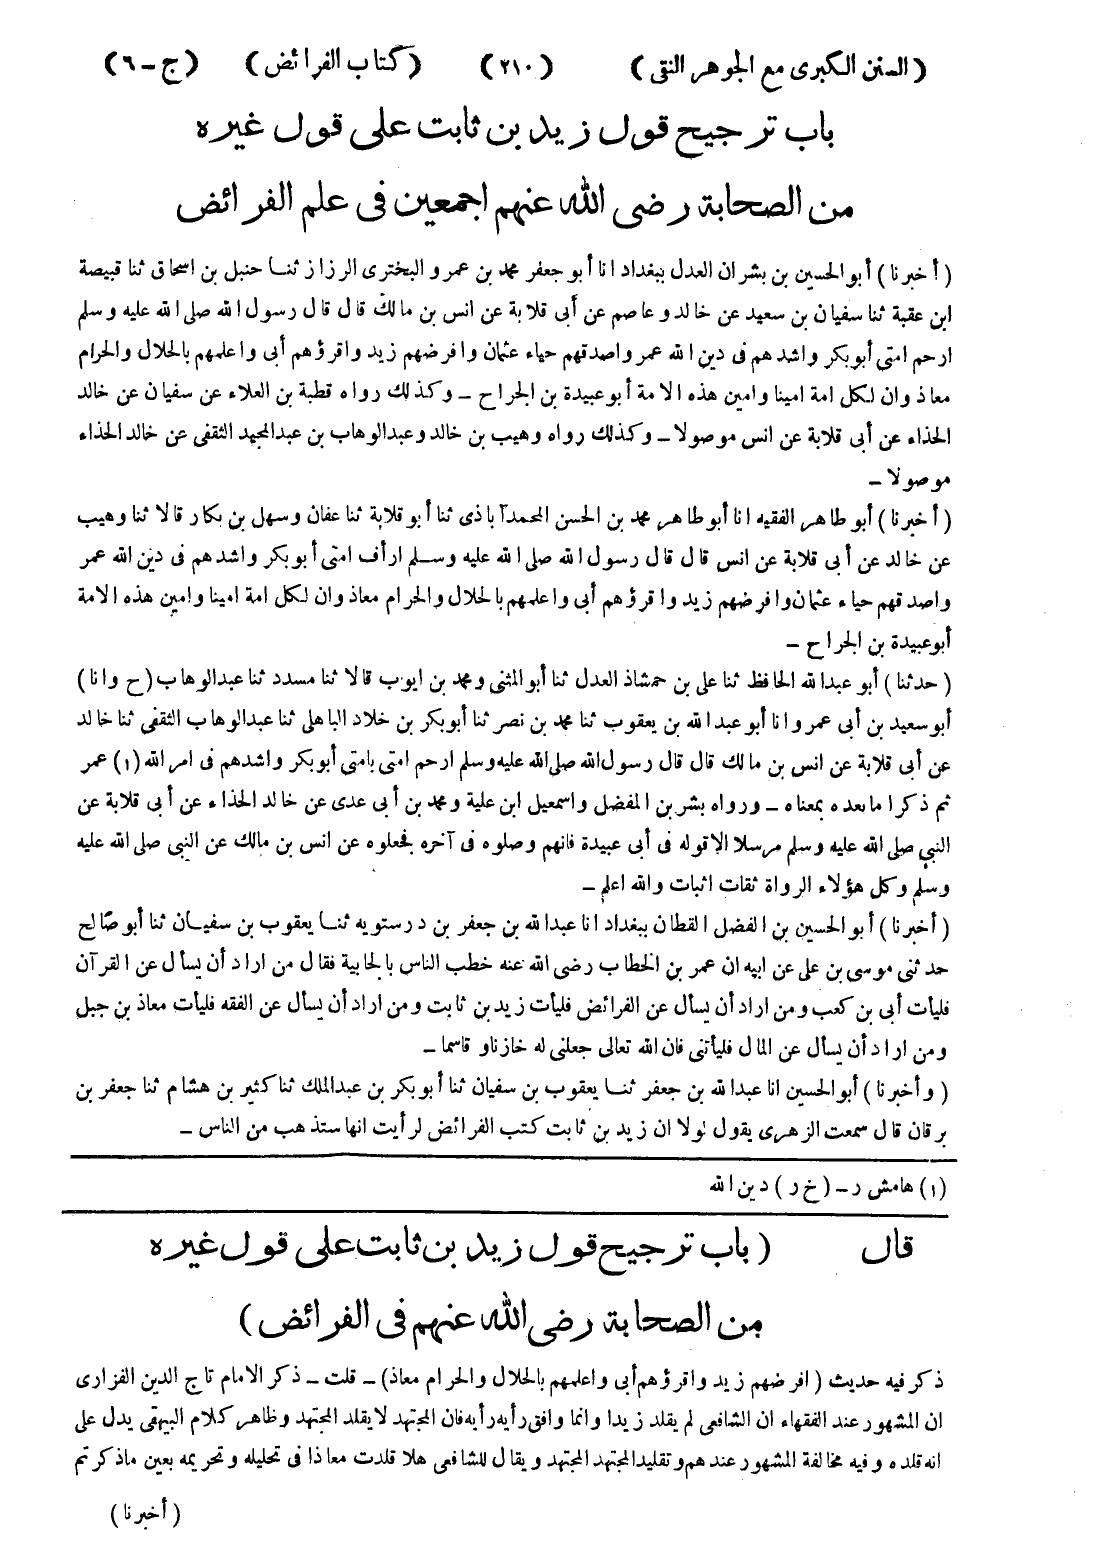 ( السنن الكبرى مع الجوهر النقى ) ( ٢١٠ ) ( كتاب الفرائض ) ( ج - ٦ )
باب ترجيح قول زيد بن ثابت على قول غيره
من الصحابة رضى الله عنهم اجمعين فى علم الفرائض
( أخبرنا ) أبو الحسين بن بشران العدل ببغداد انا أبو جعفر محمد بن عمرو البخترى الرزاز ثنا حنبل بن اسحاق ثنا قبيصة
ابن عقبة ثنا سفيان بن سعيد عن خالد وعاصم عن أبى قلابة عن انس بن مالك قال قال رسول الله صلى الله عليه وسلم
ارحم امتى أبو بكر واشدهم فى دين الله عمر واصدقهم حياء عثمان وافرضهم زيد واقرؤهم أبى واعلمهم بالحلال والحرام
معاذ وان لكل امة امينا وامين هذه الامة أبو عبيدة بن الجراح - وكذلك رواه قطبة بن العلاء عن سفيان عن خالد
الحذاء عن أبى قلابة عن انس موصولا - وكذلك رواه وهيب بن خالد وعبد الوهاب بن عبد المجيد الثقفى عن خالد الحذاء
موصولا -
( أخبرنا ) أبو طاهر الفقيه انا أبو طاهر محمد بن الحسن المحمدآباذى ثنا أبو قلابة ثنا عفان وسهل بن بكار قالا ثنا وهيب
عن خالد عن أبى قلابة عن انس قال قال رسول الله صلى الله عليه وسلم ارأف امتى أبو بكر واشدهم فى دين الله عمر
واصدقهم حياء عثمان وافرضهم زيد واقرؤهم أبى واعلمهم بالحلال والحرام معاذ وان لكل امة امينا وامين هذه الامة
أبو عبيدة بن الجراح -
( حدثنا ) أبو عبد الله الحافظ ثنا على بن حمشاذ العدل ثنا أبو المثنى ومحمد بن ايوب قالا ثنا مسدد ثنا عبد الوهاب ( ح وانا )
أبو سعيد بن أبى عمرو انا أبو عبد الله بن يعقوب ثنا محمد بن نصر ثنا أبو بكر بن خلاد الباهلى ثنا عبد الوهاب الثقفى ثنا خالد
عن أبى قلابة عن انس بن مالك قال قال رسول الله صلى الله عليه وسلم ارحم امتى بامتى أبو بكر واشدهم فى امر الله (١) عمر
ثم ذكرا ما بعده بمعناه - ورواه بشر بن المفضل واسمعيل ابن علية ومحمد بن أبى عدى عن خالد الحذاء عن أبى قلابة عن
النبي صلى الله عليه وسلم مرسلا الا قوله فى أبى عبيدة فانهم وصلوه فى آخره فجعلوه عن انس بن مالك عن النبى صلى الله عليه
وسلم وكل هؤلاء الرواة ثقات اثبات والله اعلم -
( أخبرنا ) أبو الحسين بن الفضل القطان ببغداد انا عبد الله بن جعفر بن درستويه ثنا يعقوب بن سفيان ثنا أبو صالح
حدثنى موسى بن على عن ابيه ان عمر بن الخطاب رضى الله عنه خطب الناس بالجابية فقال من اراد أن يسأل عن القرآن
فليأت أبى بن كعب ومن اراد أن يسأل عن الفرائض فليأت زيد بن ثابت ومن اراد أن يسأل عن الفقه فليأت معاذ بن جبل
ومن اراد أن يسأل عن المال فليأتنى فان الله تعالى جعلنى له خازنا وقاسما -
( وأخبرنا ) أبو الحسين انا عبد الله بن جعفر ثنا يعقوب بن سفيان ثنا أبو بكر بن عبد الملك ثنا كثير بن هشام ثنا جعفر بن
برقان قال سمعت الزهرى يقول لولا ان زيد بن ثابت كتب الفرائض لرأيت انها ستذهب من الناس -
(١) هامش ر - ( خ ر ) دين الله
قال ( باب ترجيح قول زيد بن ثابت على قول غيره
من الصحابة رضى الله عنهم فى الفرائض )
ذكر فيه حديث ( افرضهم زيد واقرؤهم أبى واعلمهم بالحلال والحرام معاذ ) - قلت - ذكر الامام تاج الدين الفزارى
ان المشهور عند الفقهاء ان الشافعى لم يقلد زيدا وانما وافق رأيه رأيه فان المجتهد لا يقلد المجتهد وظاهر كلام البيهقى يدل على
انه قلده وفيه مخالفة المشهور عندهم وتقليد المجتهد المجتهد ويقال للشافعى هلا قلدت معاذا فى تحليله وتحريمه بعين ما ذكرتم
( أخبرنا )